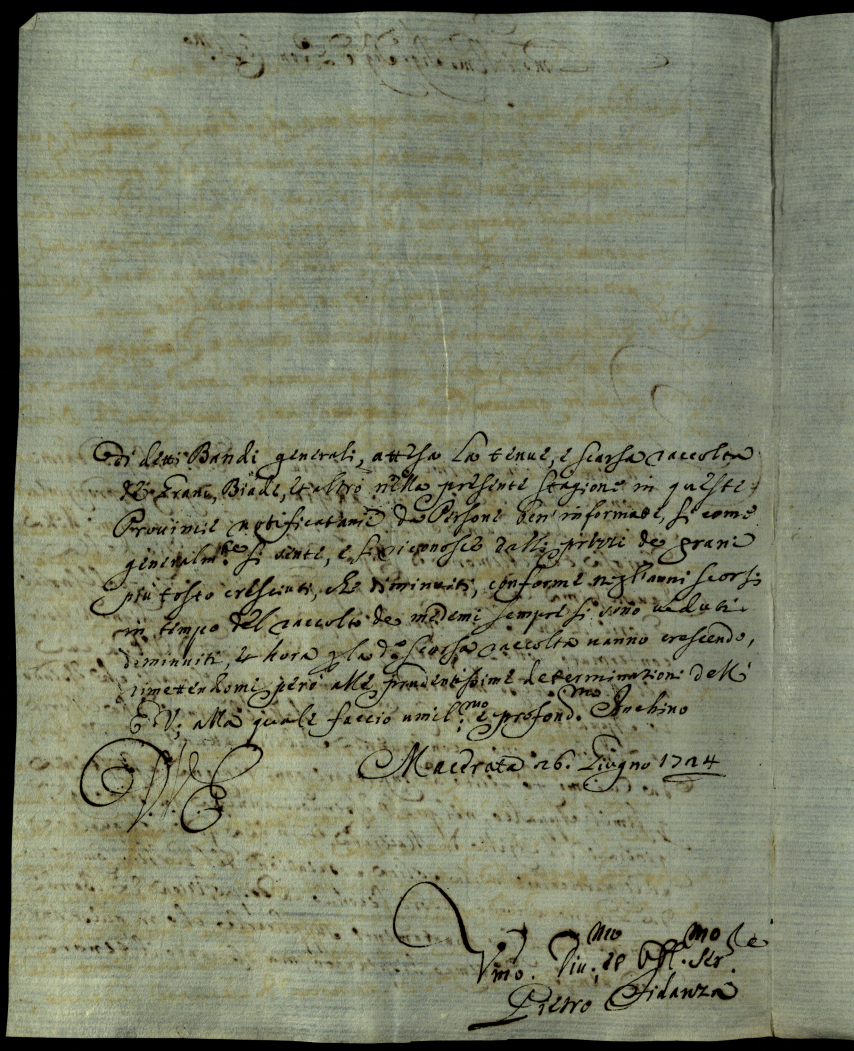 di detti Bandi generali, attesa la tenue, e scarsa raccolta
de grani, Biade, et altro nella presente stagione in queste
Provincie notificatami da Persone ben informate, si come
generalm.te si sente, e si riconosce dalli prezzi de grani
più tosto cresciuti, che diminuiti, conforme negl'anni scorsi
in tempo del raccolto de medemi sempre si sono veduti
diminuiti, et hora p la d.a scarsa raccolta vanno crescendo,
rimettendomi però alle prudentissime determinazioni dell'
E.V., alla quale faccio umil.mo e profond.mo Inchino
D. V. E.
Macerata 26. Giugno 1724
Vmo. Div.mo et Obl.mo Ser.re
Pietro Fidanza